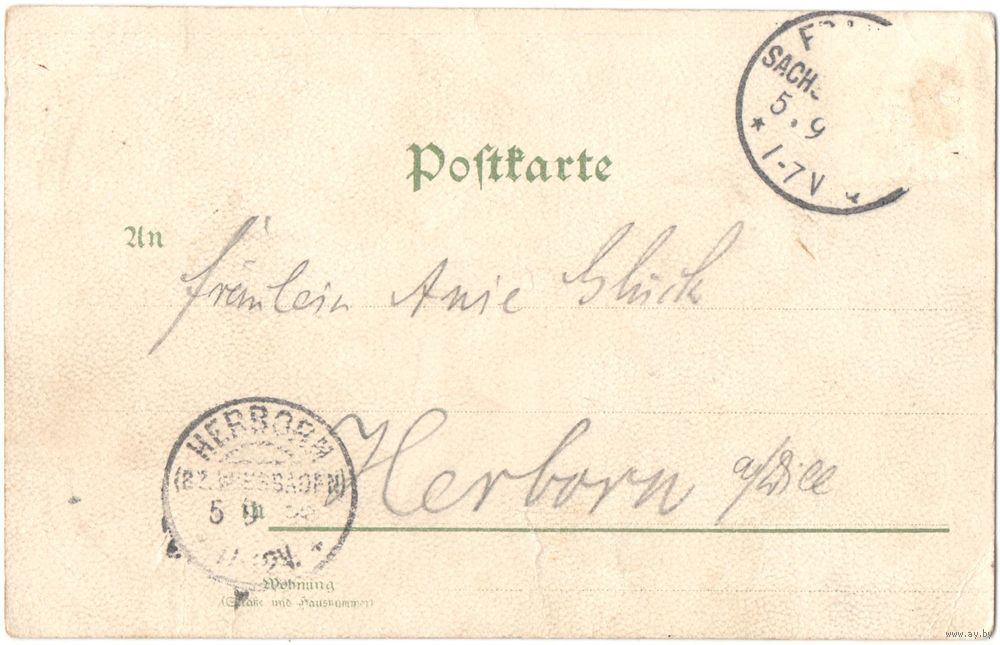 SACH
5.9
1-7V
Postkarte
An
Fräulein Anie Glück
Herborn a/Dill
HERBORN
(BZ. WIESBADEN)
5 9
in
Wohnung
(Straße und Hausnummer)
www.ay.by